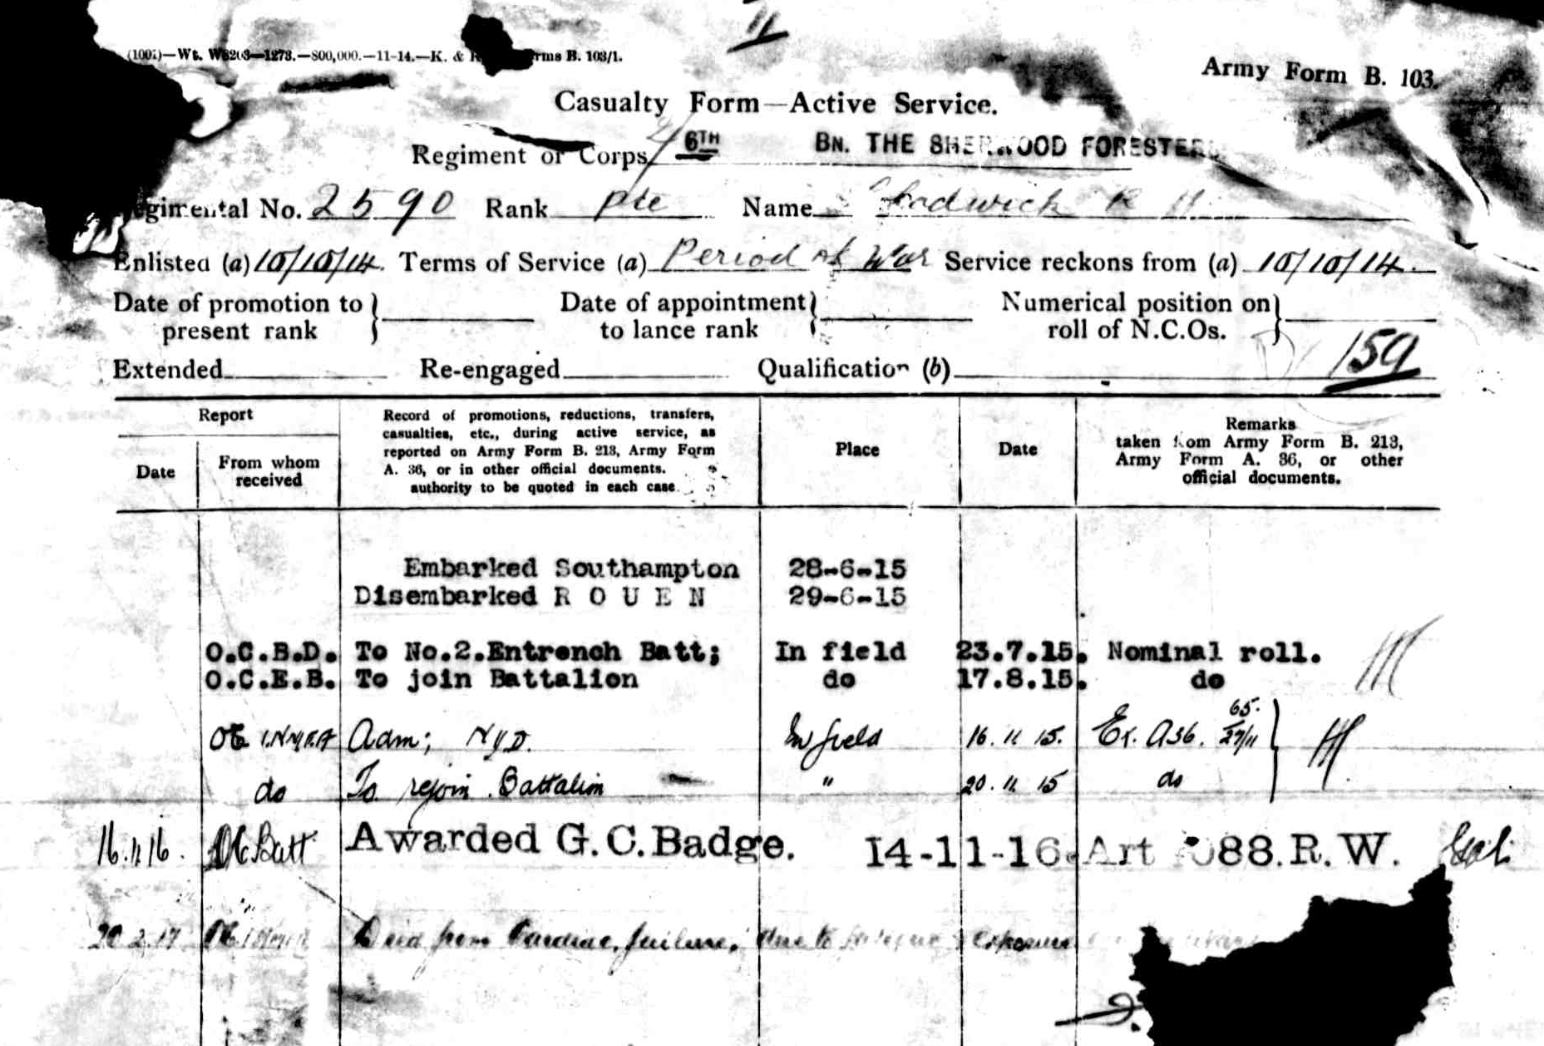 (1002)—Wt. W8203—1273.—800,000.—11-14.—K. & Forms B. 103/1.
Army Form B. 103.
Casualty Form—Active Service.
Regiment or Corps 6TH BN. THE SHERWOOD FORESTERS
Regimental No. 2590 Rank Pte Name Shadwick R H
Enlisted (a) 10/10/14. Terms of Service (a) Period of War Service reckons from (a) 10/10/14.
Date of promotion to present rank } Date of appointment to lance rank } Numerical position on roll of N.C.Os. }
159
Extended Re-engaged Qualification (b)
Report
Date
From whom received
Record of promotions, reductions, transfers,
casualties, etc., during active service, as
reported on Army Form B. 213, Army Form
A. 36, or in other official documents.
authority to be quoted in each case.
Place
Date
Remarks
taken from Army Form B. 213,
Army Form A. 36, or other
official documents.
Embarked Southampton 28-6-15
Disembarked R O U E N 29-6-15
O.C.B.D. To No.2.Entrench Batt; In field 23.7.15. Nominal roll.
O.C.E.B. To join Battalion do 17.8.15. do
OC Adm; NYD. In field 16.11.15. Ex. A36. 65. 27/11
do To rejoin Battalion " 20.11.15 do
16.11.16. OC Batt Awarded G.C.Badge. 14-11-16. Art 1088.R.W.
20.2.17 OC Died from Cardiac failure, due to exposure